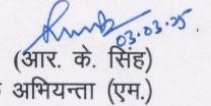 03.03.25
(आर. के. सिंह)
अभियन्ता (एम.)